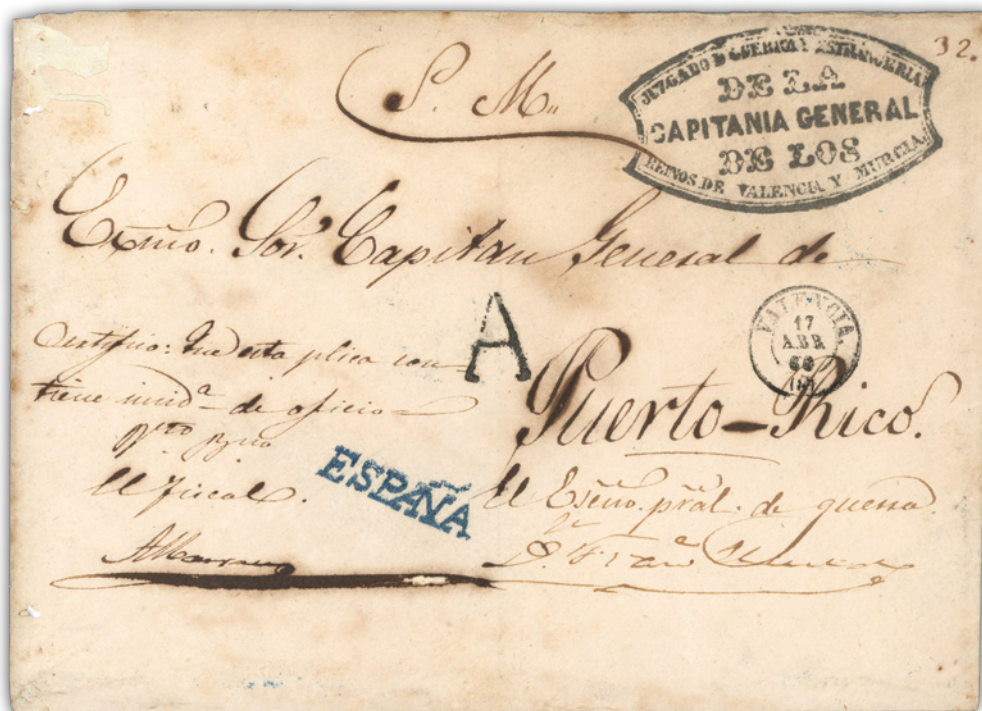 32.
JUZGADO D GUERRA Y ESTRANGERIA
DE LA
CAPITANIA GENERAL
DE LOS
REINOS DE VALENCIA Y MURCIA
S. M.
Exmo. Sor. Capitan General de
VALENCIA.
17
ABR
A
Certifico: Que esta plica con
tiene unida de oficio
Puerto-Rico.
El fiscal.
ESPAÑA
El Esno. pral. de guerra